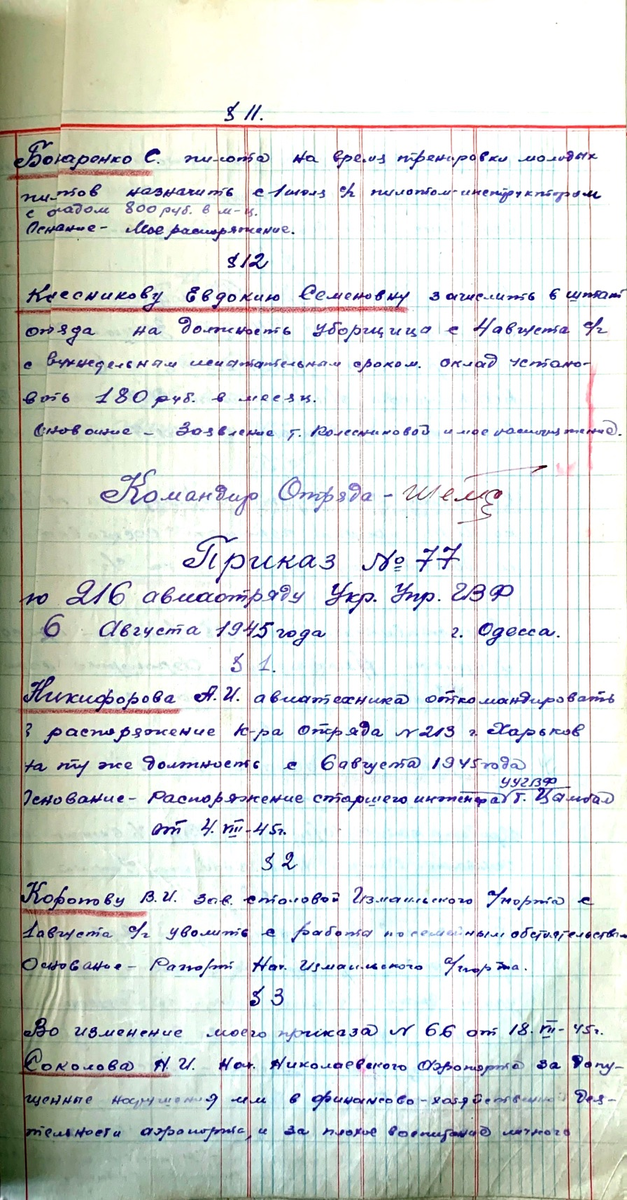 § 11.
Бонаренко С. пилота на время тренировки молодых
пилотов назначить с 1 июля с/г пилотом-инструктором
с окладом 800 руб. в м-ц.
Основание - Мое распоряжение.
§ 12
Колесникову Евдокию Семеновну зачислить в штат
отряда на должность уборщица с 4 августа с/г
с 2х недельным испытательным сроком. оклад устано-
вить 180 руб. в месяц.
Основание - Заявление т. Колесниковой и мое распоряжение.
Командир Отряда -
Приказ № 77
по 216 авиаотряду Укр. Упр. ГВФ
6 Августа 1945 года г. Одесса.
§ 1.
Никифорова А.И. авиатехника откомандировать
в распоряжение К-ра Отряда N 213 г. Харьков
на ту же должность с 6 августа 1945 года
УУГВФ
Основание - Распоряжение старшего инженера т. Цамбал
от 4. VIII - 45 г.
§ 2
Коротову В.И. зав. столовой Измаильского а/порта с
1 августа с/г уволить с работа по семейным обстоятельствам
Основание - Рапорт Нач. Измаильского а/порта.
§ 3
Во изменение моего приказа N 66 от 18. VII - 45 г.
Соколова Н.И. Нач. Николаевского Аэропорта за допу-
щенные нарушения им в финансово-хозяйственной дея-
тельности аэропорта, и за плохое воспитание личного